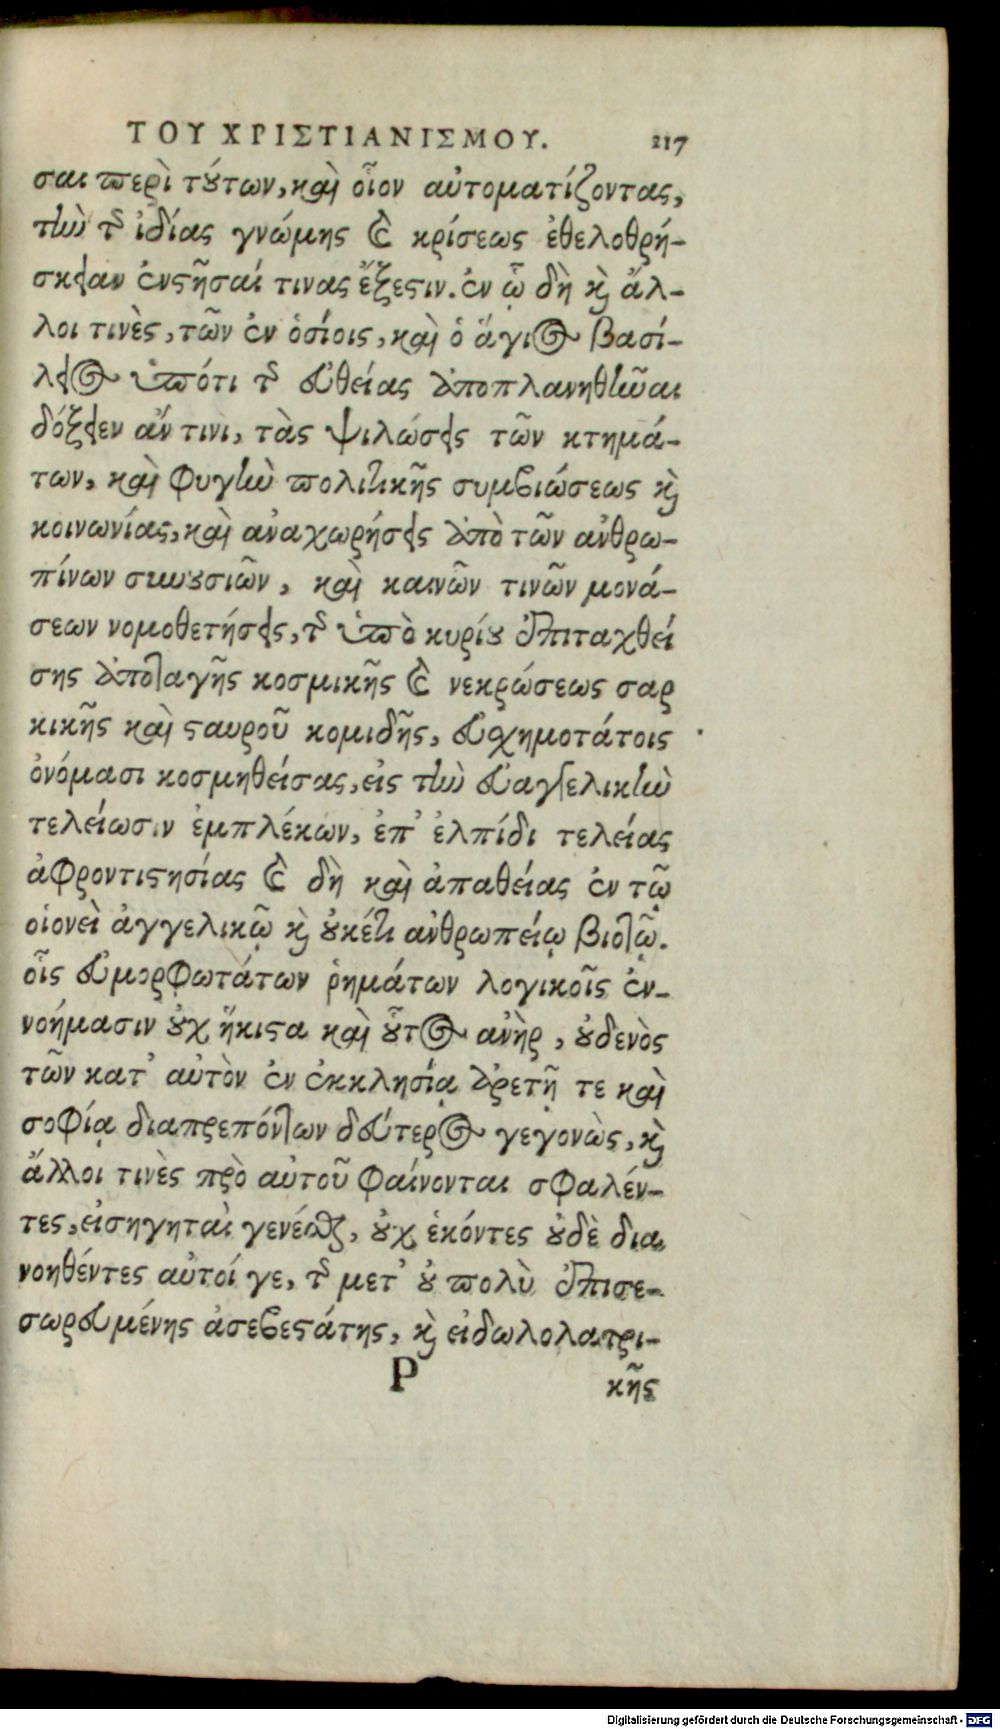 ΤΟΥ ΧΡΙΣΤΙΑΝΙΣΜΟΥ. 217
σαι περὶ τούτων, καὶ οἷον αὐτοματίζοντας,
τὴν τῆς ἰδίας γνώμης καὶ κρίσεως ἐθελοθρή-
σκειαν ἐνστῆσαί τινας ἔξεστιν. ἐν ᾧ δὴ καὶ ἄλ-
λοι τινὲς, τῶν ἐν ὁσίοις, καὶ ὁ ἅγιος Βασί-
λειος ὑπότι τῆς εὐθείας ἀποπλανηθῆναι
δόξειεν ἄν τινι, τὰς ψιλώσεις τῶν κτημά-
των, καὶ φυγὴν πολιτικῆς συμβιώσεως καὶ
κοινωνίας, καὶ ἀναχωρήσεις ἀπὸ τῶν ἀνθρω-
πίνων συνουσιῶν, καὶ καινῶν τινῶν μονά-
σεων νομοθετήσεις, τῆς ὑπὸ κυρίου ἐπιταχθεί
σης ἀποταγῆς κοσμικῆς καὶ νεκρώσεως σαρ
κικῆς καὶ σταυροῦ κομιδῆς, εὐσχημοτάτοις
ὀνόμασι κοσμηθείσας, εἰς τὴν εὐαγγελικὴν
τελείωσιν ἐμπλέκων, ἐπ' ἐλπίδι τελείας
ἀφροντιστησίας καὶ δὴ καὶ ἀπαθείας ἐν τῷ
οἱονεὶ ἀγγελικῷ καὶ οὐκέτι ἀνθρωπείῳ βιοτῷ.
οἷς εὐμορφωτάτων ῥημάτων λογικοῖς ἐν-
νοήμασιν οὐχ ἥκιστα καὶ οὗτος ἀνὴρ, οὐδενὸς
τῶν κατ' αὐτὸν ἐν ἐκκλησίᾳ ἀρετῇ τε καὶ
σοφίᾳ διαπρεπόντων δεύτερος γεγονὼς, καὶ
ἄλλοι τινὲς πρὸ αὐτοῦ φαίνονται σφαλέν-
τες, εἰσηγηταὶ γενέσθαι, οὐχ ἑκόντες οὐδὲ δια
νοηθέντες αὐτοί γε, τῆς μετ' οὐ πολὺ ἐπισε-
σωρευμένης ἀσεβεστάτης, καὶ εἰδωλολατρι-
P κῆς
Digitalisierung gefördert durch die Deutsche Forschungsgemeinschaft - DFG